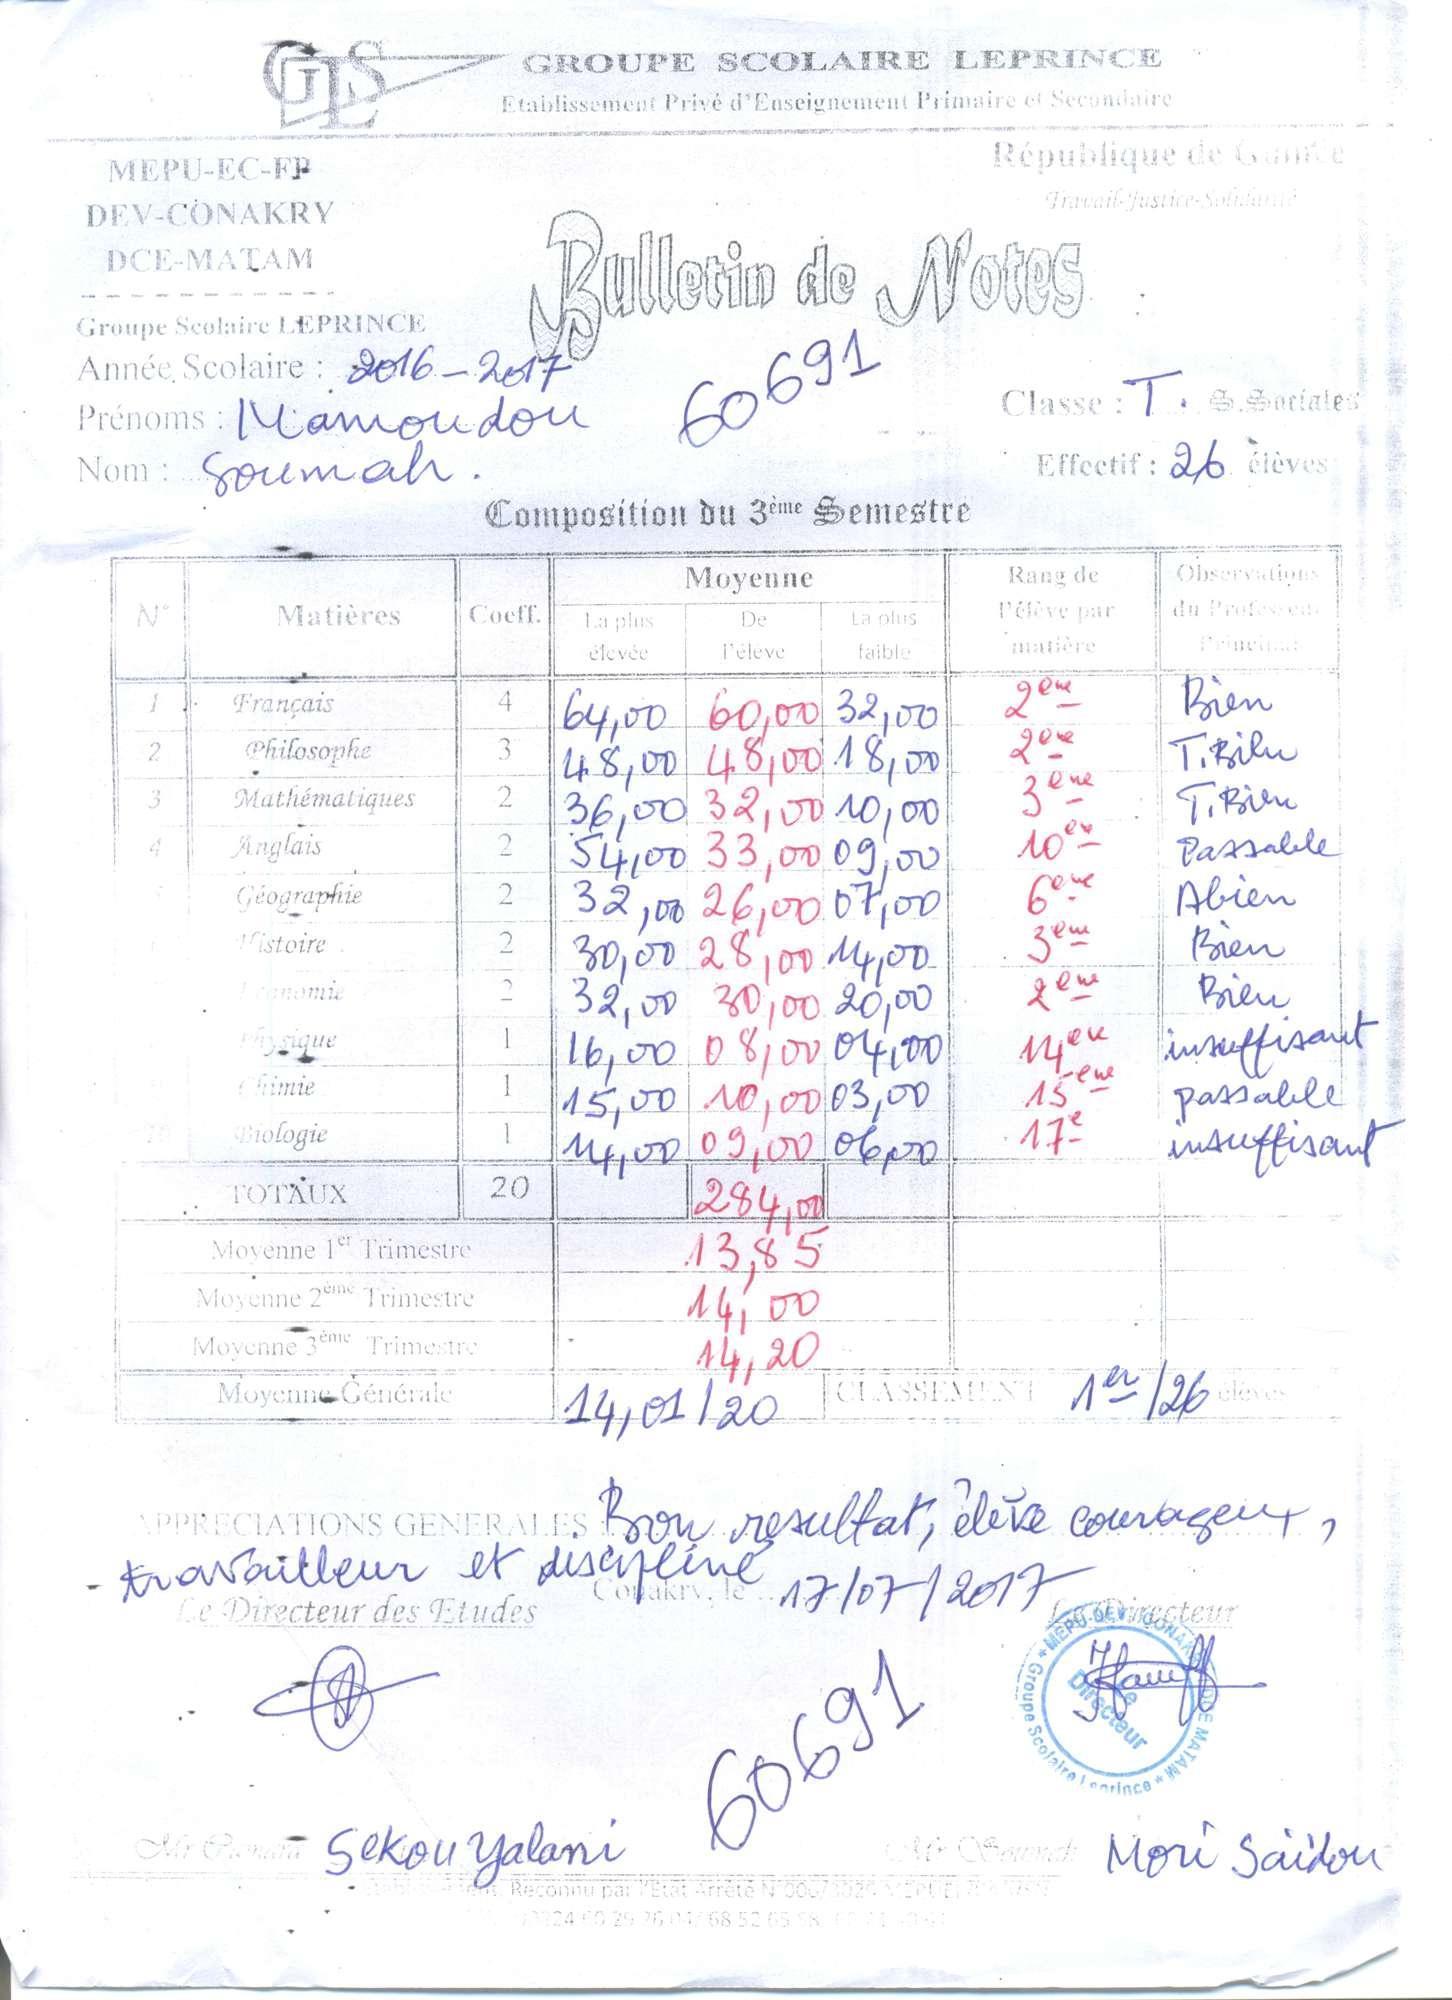 GLS
GROUPE SCOLAIRE LEPRINCE
Etablissement Privé d'Enseignement Primaire et Secondaire
MEPU-EC-FP
République de Guinée
DEV-CONAKRY
Travail-Justice-Solidarité
DCE-MATAM
Bulletin de Notes
Groupe Scolaire LEPRINCE
Année Scolaire : 2016-2017
60691
Prénoms : Mamoudou
Classe : T. S.Sociales
Nom : Soumah.
Effectif : 26 élèves
Composition du 3ème Semestre
N° Matières Coeff. Moyenne Rang de l'élève par matière Observations du Professeur Principal
La plus élevée De l'élève La plus faible
1 Français 4 64,00 60,00 32,00 2ème Bien
2 Philosophe 3 48,00 48,00 18,00 2ème T.Bien
3 Mathématiques 2 36,00 32,00 10,00 3ème T.Bien
4 Anglais 2 54,00 33,00 09,00 10ème Passable
Géographie 2 32,00 26,00 07,00 6ème Abien
Histoire 2 30,00 28,00 14,00 3ème Bien
Economie 2 32,00 30,00 20,00 2ème Bien
Physique 1 16,00 08,00 04,00 14ème insuffisant
Chimie 1 15,00 10,00 03,00 15ème passable
10 Biologie 1 14,00 09,00 06,00 17e insuffisant
TOTAUX 20 284,00
Moyenne 1er Trimestre 13,85
Moyenne 2ème Trimestre 14,00
Moyenne 3ème Trimestre 14,20
Moyenne Générale 14,01/20 CLASSEMENT 1er/26 élèves
APPRECIATIONS GENERALES : Bon resultat, élève courageux,
travailleur et discipliné
Conakry, le 17/07/2017
Le Directeur des Etudes
Le Directeur
MEPU DEV CONAKRY DCE MATAM
Groupe Scolaire Leprince
Le Directeur
60691
Mr Camara Sekou Yalani
Mr Soumah Mori Saidou
Etablissement Reconnu par l'Etat Arrêté N